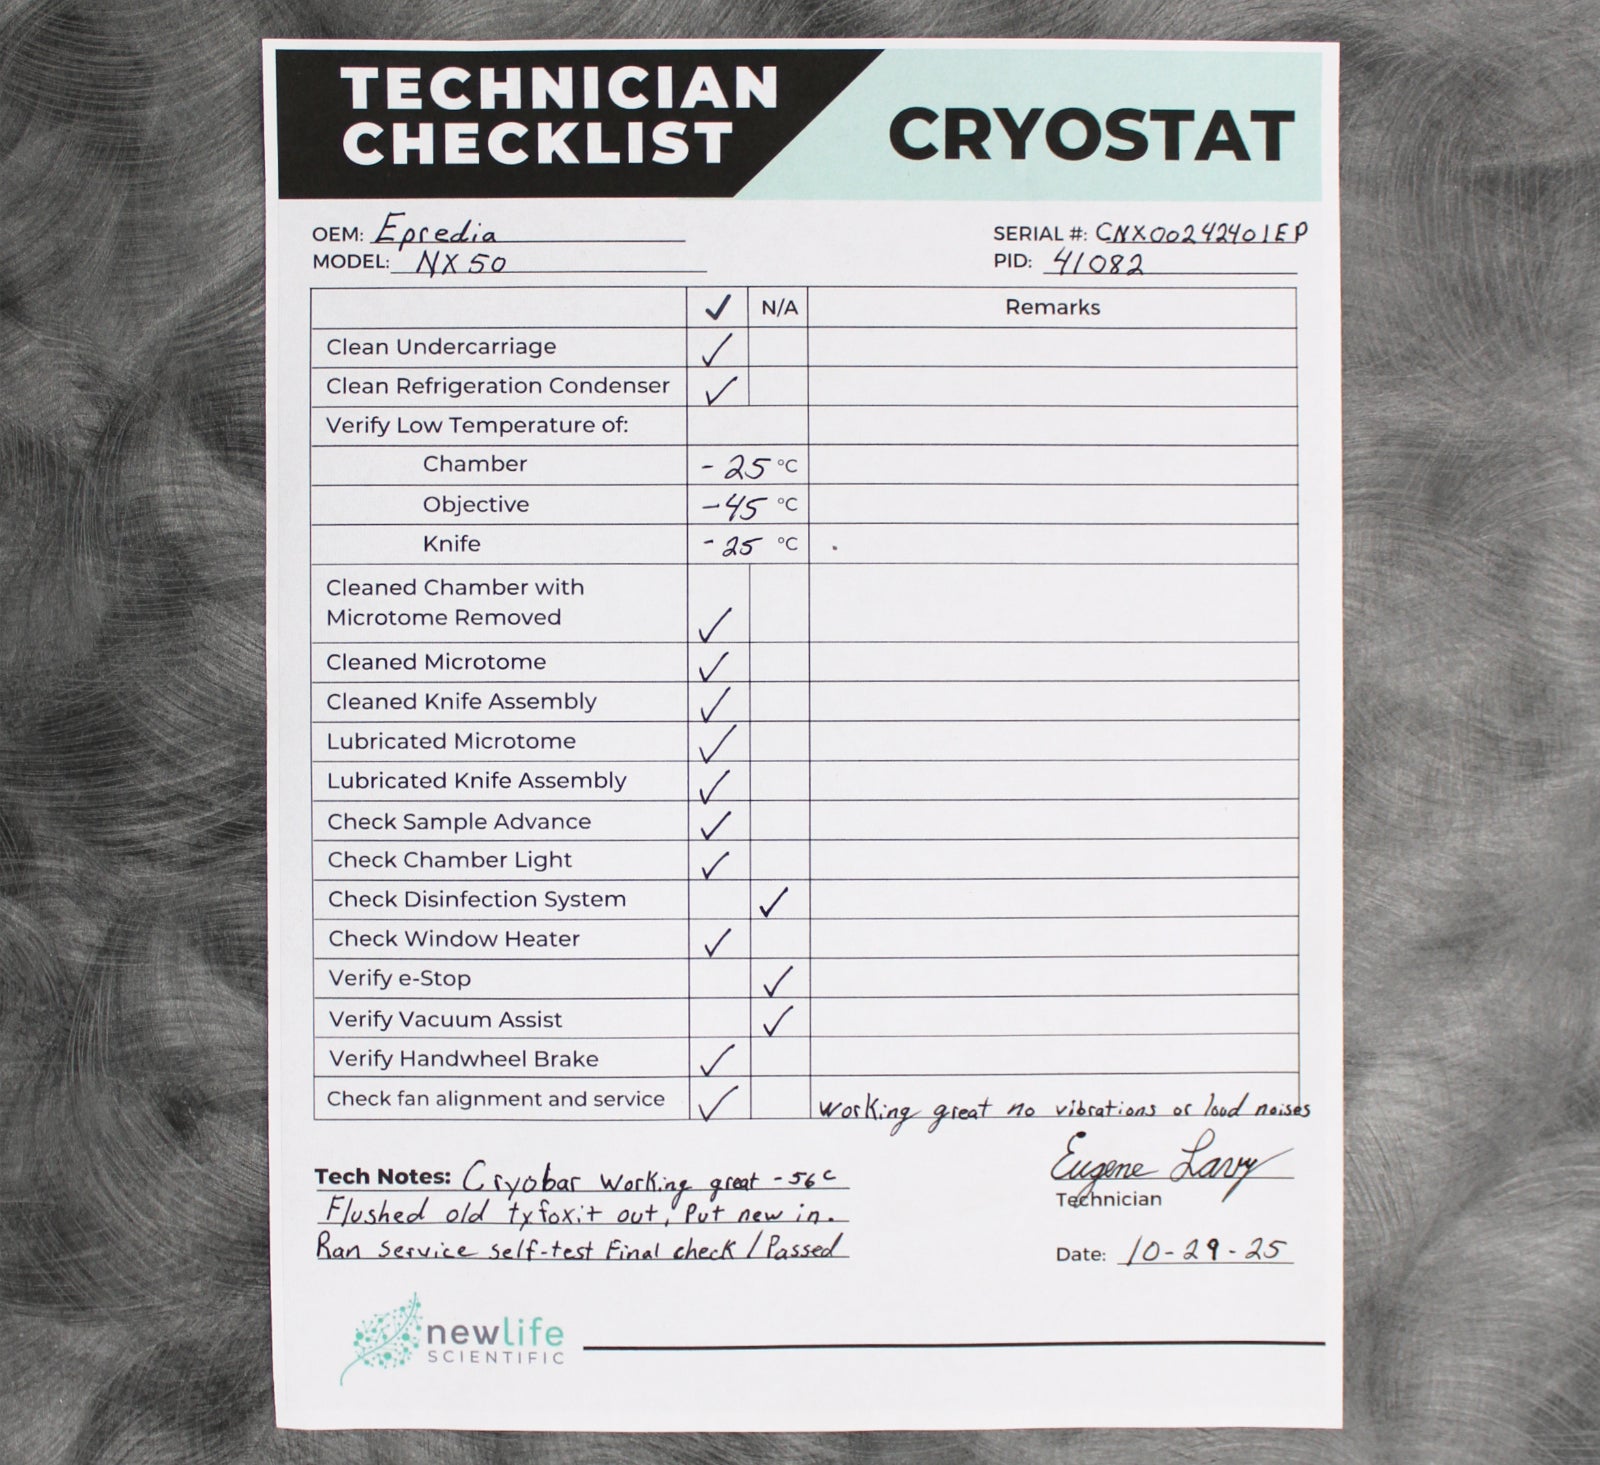 TECHNICIAN
CHECKLIST
CRYOSTAT
OEM: Epredia
SERIAL #: CNX00242401EP
MODEL: NX50
PID: 41082
✓ N/A Remarks
Clean Undercarriage ✓
Clean Refrigeration Condenser ✓
Verify Low Temperature of:
Chamber -25 °C
Objective -45 °C
Knife -25 °C
Cleaned Chamber with
Microtome Removed ✓
Cleaned Microtome ✓
Cleaned Knife Assembly ✓
Lubricated Microtome ✓
Lubricated Knife Assembly ✓
Check Sample Advance ✓
Check Chamber Light ✓
Check Disinfection System ✓
Check Window Heater ✓
Verify e-Stop ✓
Verify Vacuum Assist ✓
Verify Handwheel Brake ✓
Check fan alignment and service ✓ Working great no vibrations or loud noises
Tech Notes: Cryobar Working great -56 C
Flushed old tyfoxit out, Put new in.
Ran Service self-test Final check / Passed
Eugene Lavy
Technician
Date: 10-29-25
newlife
SCIENTIFIC